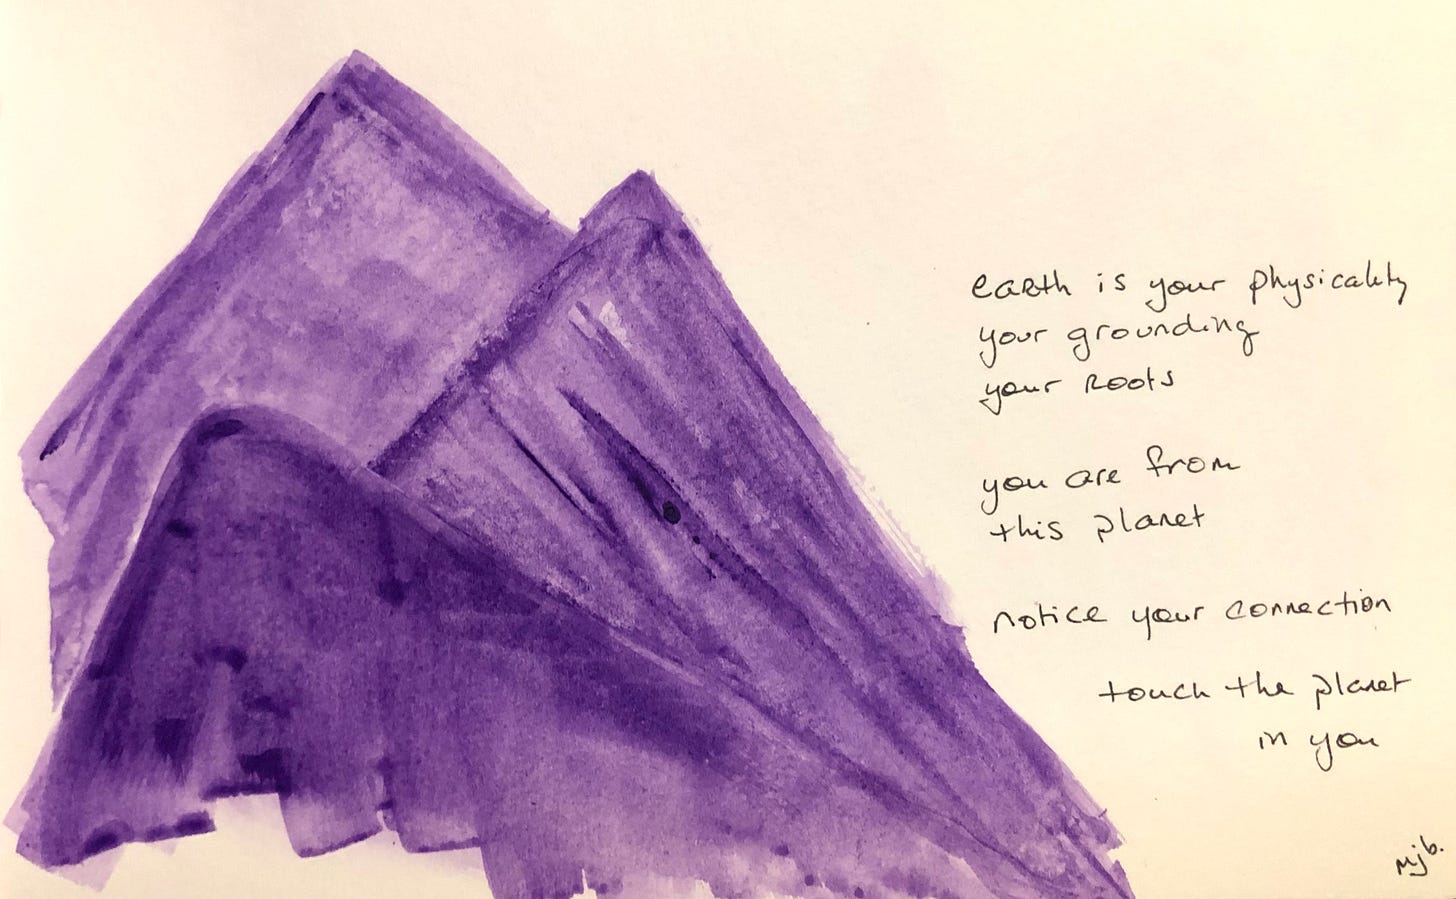 earth is your physicality
your grounding
your roots
you are from
this planet
notice your connection
touch the planet
in you
mjb.